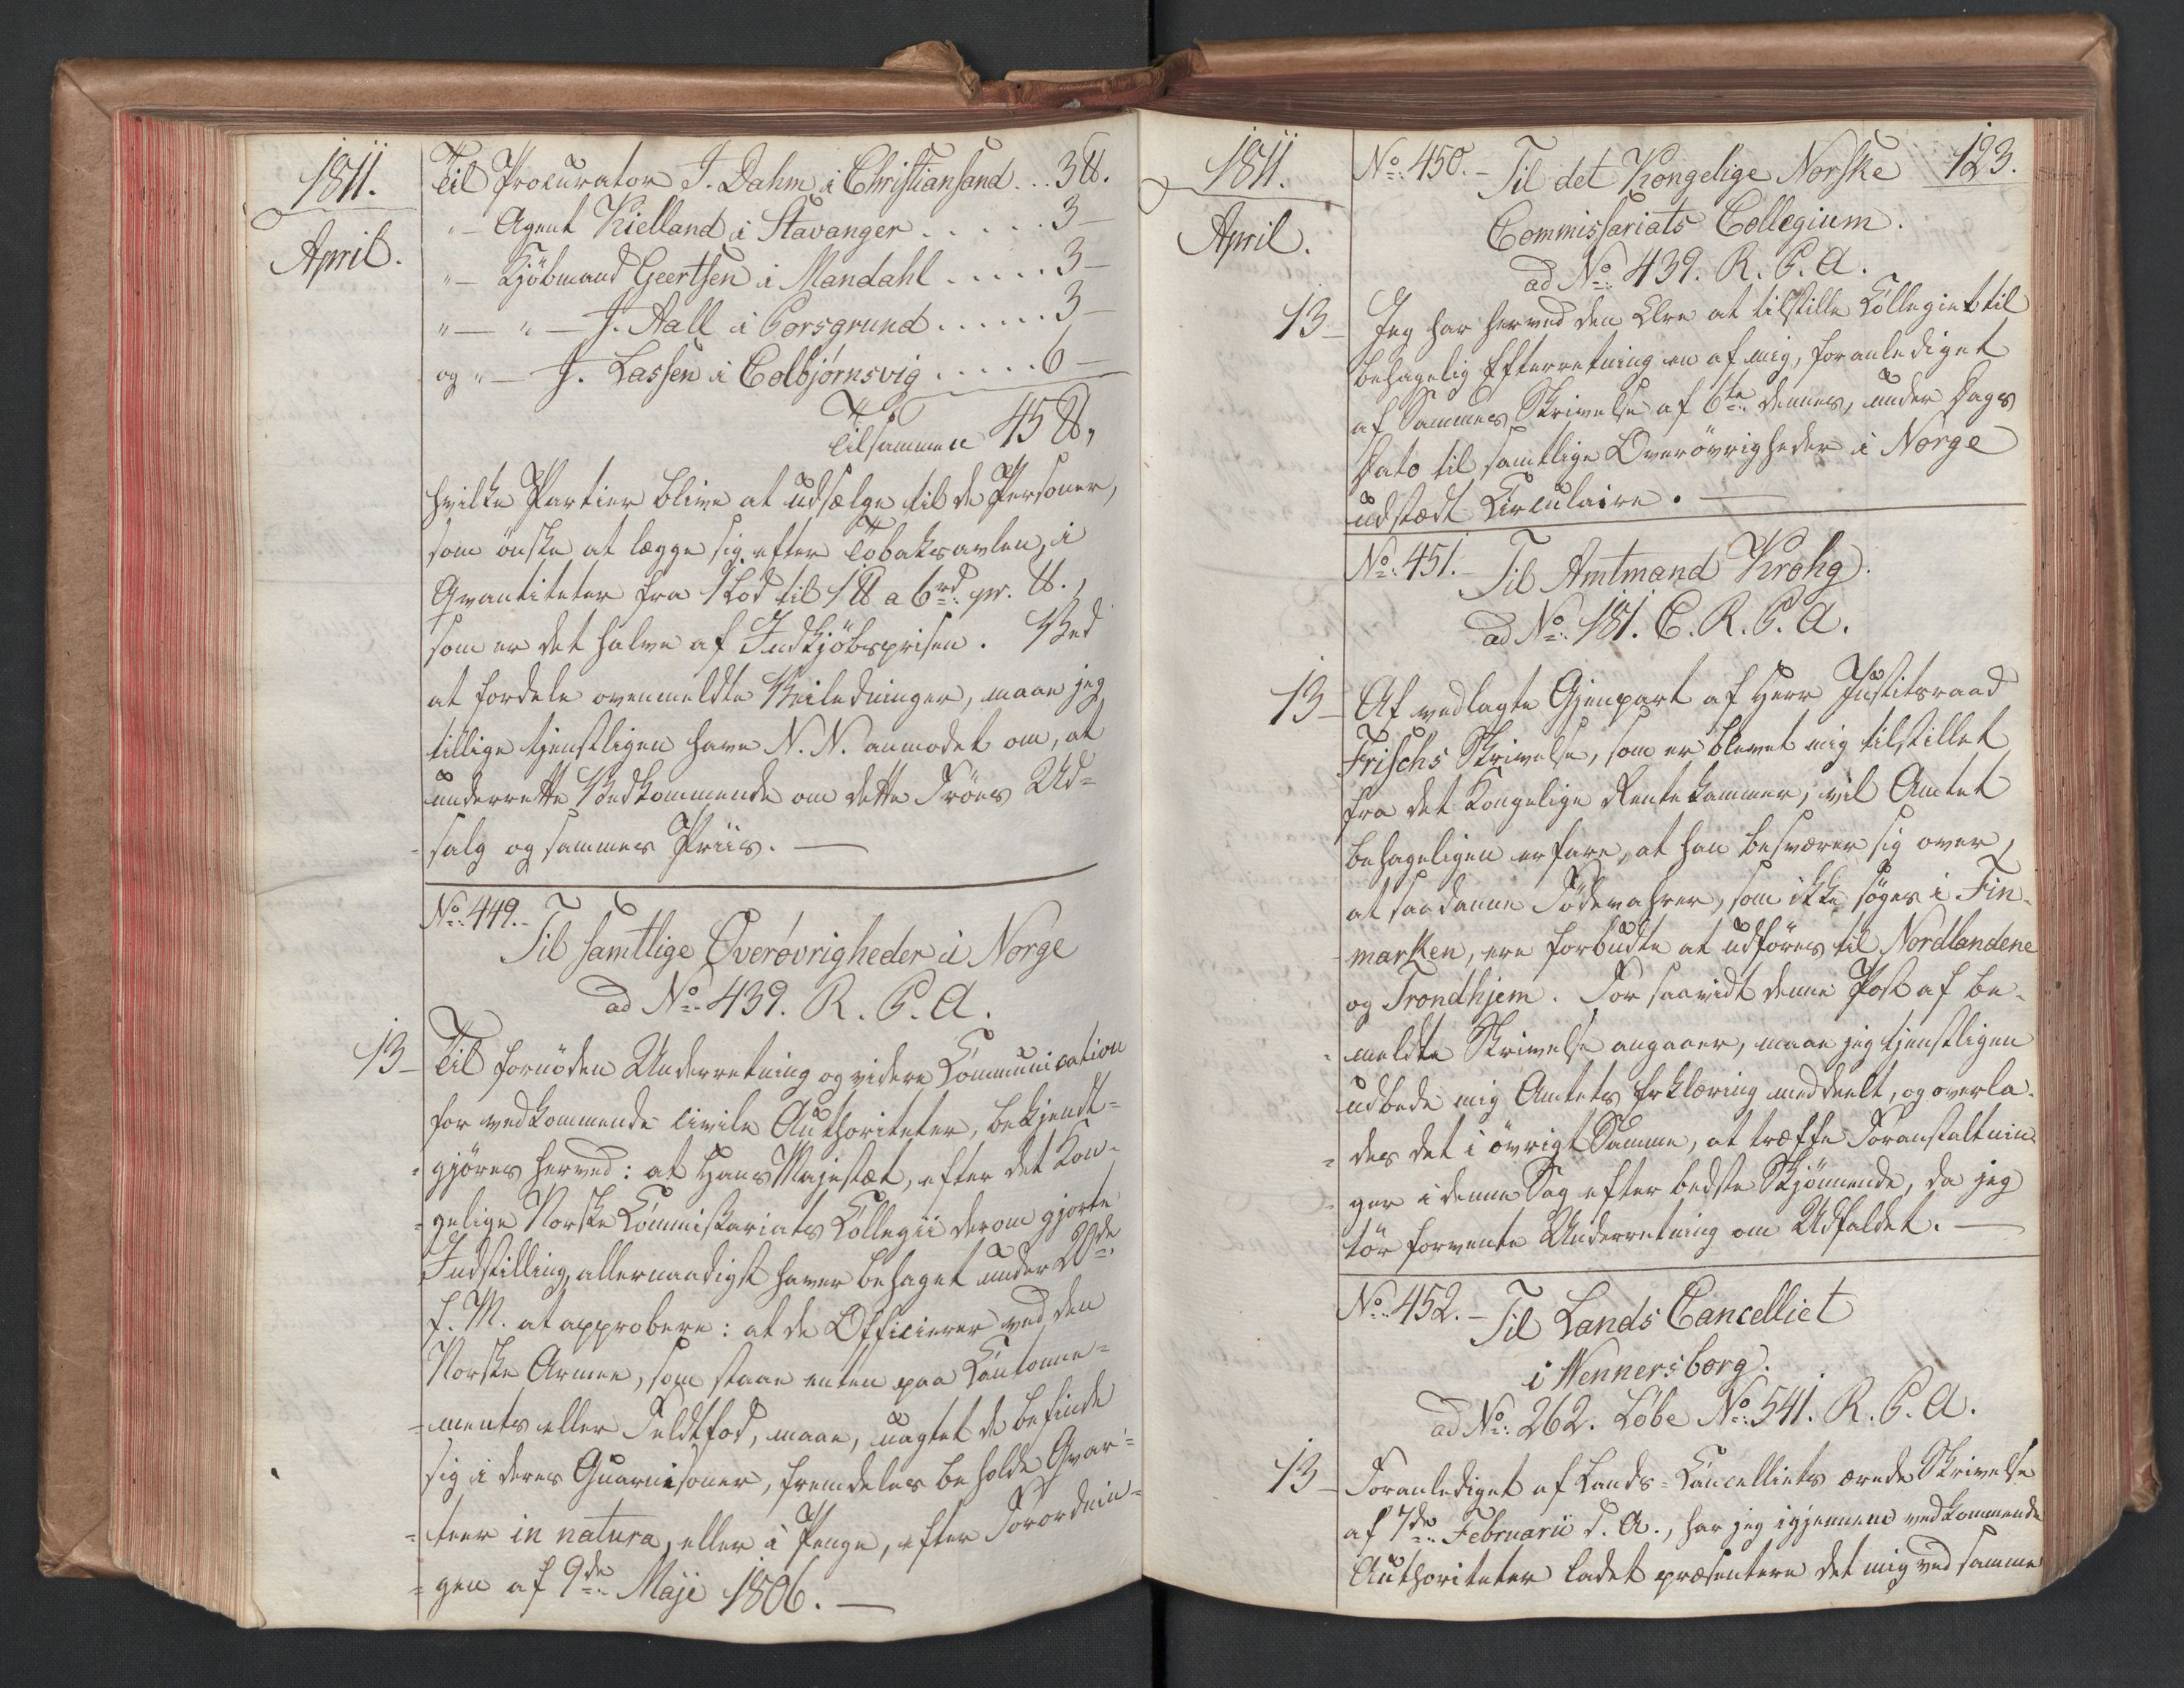 1811.
April.
Til Procurator J. Dahm i Christiansand... 3 ℔.
" — Agent Kielland i Stavanger..... 3 —
" — Kjöbmand Geertsen i Mandahl..... 3 —
" — " — J. Aall i Porsgrund...... 3 —
og " — J. Lassen i Colbjørnsvig..... 6 —
Tilsammen 45 ℔,
hvilke Partier blive at udsælge til de Personer,
som önske at lægge sig efter Tobaksavlen, i
Qvantiteter fra 1 Lod til 1 ℔ a 6 rd. pr. ℔.,
som er det halve af Indkjöbsprisen. Ved
at fordele ovenmeldte Veiledninger, maae jeg
tillige tjenstligen have N. N. anmodet om, at
underrette Vedkommende om dette Fröes Ud=
salg og sammes Priis. —
No. 449. - Til samtlige Overövrigheder i Norge
ad No. 439. R. P. A.
13 — Til fornöden Underretning og videre Communication
for vedkommende civile Authoriteter, bekjendt=
gjöres herved: at Hans Majestæt, efter det Kon=
=gelige Norske Commissariats Collegii derom gjorte
Indstilling, allernaadigst haver behaget under 20de
f. M. at approbere: at de Officierer ved den
Norske Armee, som staae enten paa Cantonne=
=ments eller Feldtfod, maae, uagtet de befinde
sig i deres Guarnisoner, fremdeles beholde Qvar=
=teer in natura, eller i Penge, efter Forordnin=
=gen af 9de Maji 1806. —
1811.
April.
123.
No. 450. - Til det Kongelige Norske
Commissariats Collegium.
ad No. 439. R. P. A.
13 — Jeg har herved den Ære at tilstille Collegiet til
behagelig Efterretning en af mig, foranlediget
af Sammes Skrivelse af 6te dennes, under Dags
Dato til samtlige Overövrigheder i Norge
udstædt Circulaire. —
No. 451. - Til Amtmand Krohg.
ad No. 181. C. R. P. A.
13 — Af vedlagte Gjenpart af Herr Justitsraad
Frischs Skrivelse, som er blevet mig tilstillet
fra det Kongelige Rentekammer, vil Amtet
behageligen erfare, at han besværer sig over,
at saadanne Födevahrer, som ikke söges i Fin=
marken, ere forbudte at udföres til Nordlandene
og Trondhjem. For saavidt denne Post af be=
=meldte Skrivelse angaaer, maae jeg tjenstligen
udbede mig Amtets Erklæring meddeelt, og overla=
=des det i övrigt Samme, at træffe Foranstaltnin=
=ger i denne Sag efter bedste Skjönnende, da jeg
tör forvente Underretning om Udfaldet. —
No. 452. - Til Lands Cancelliet
i Wennersborg.
ad No. 262. Löbe No. 541. R. P. A.
13 — Foranlediget af Lands-Cancelliets ærede Skrivelse
af 7de Februarii d. A., har jeg igjennem vedkommende
Authoriteter ladet præsentere det mig ved samme